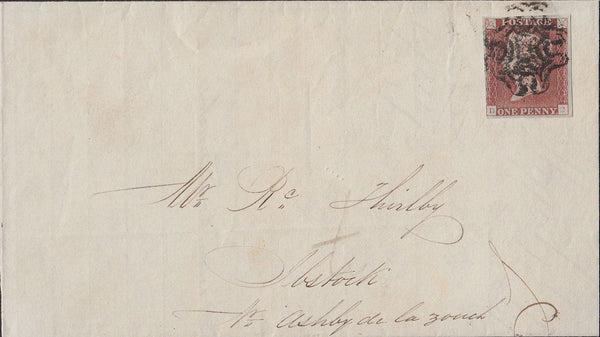 POSTAGE
ONE PENNY
Mr. Rc. Thirlby
Ibstock
Nr. Ashby de la zouch